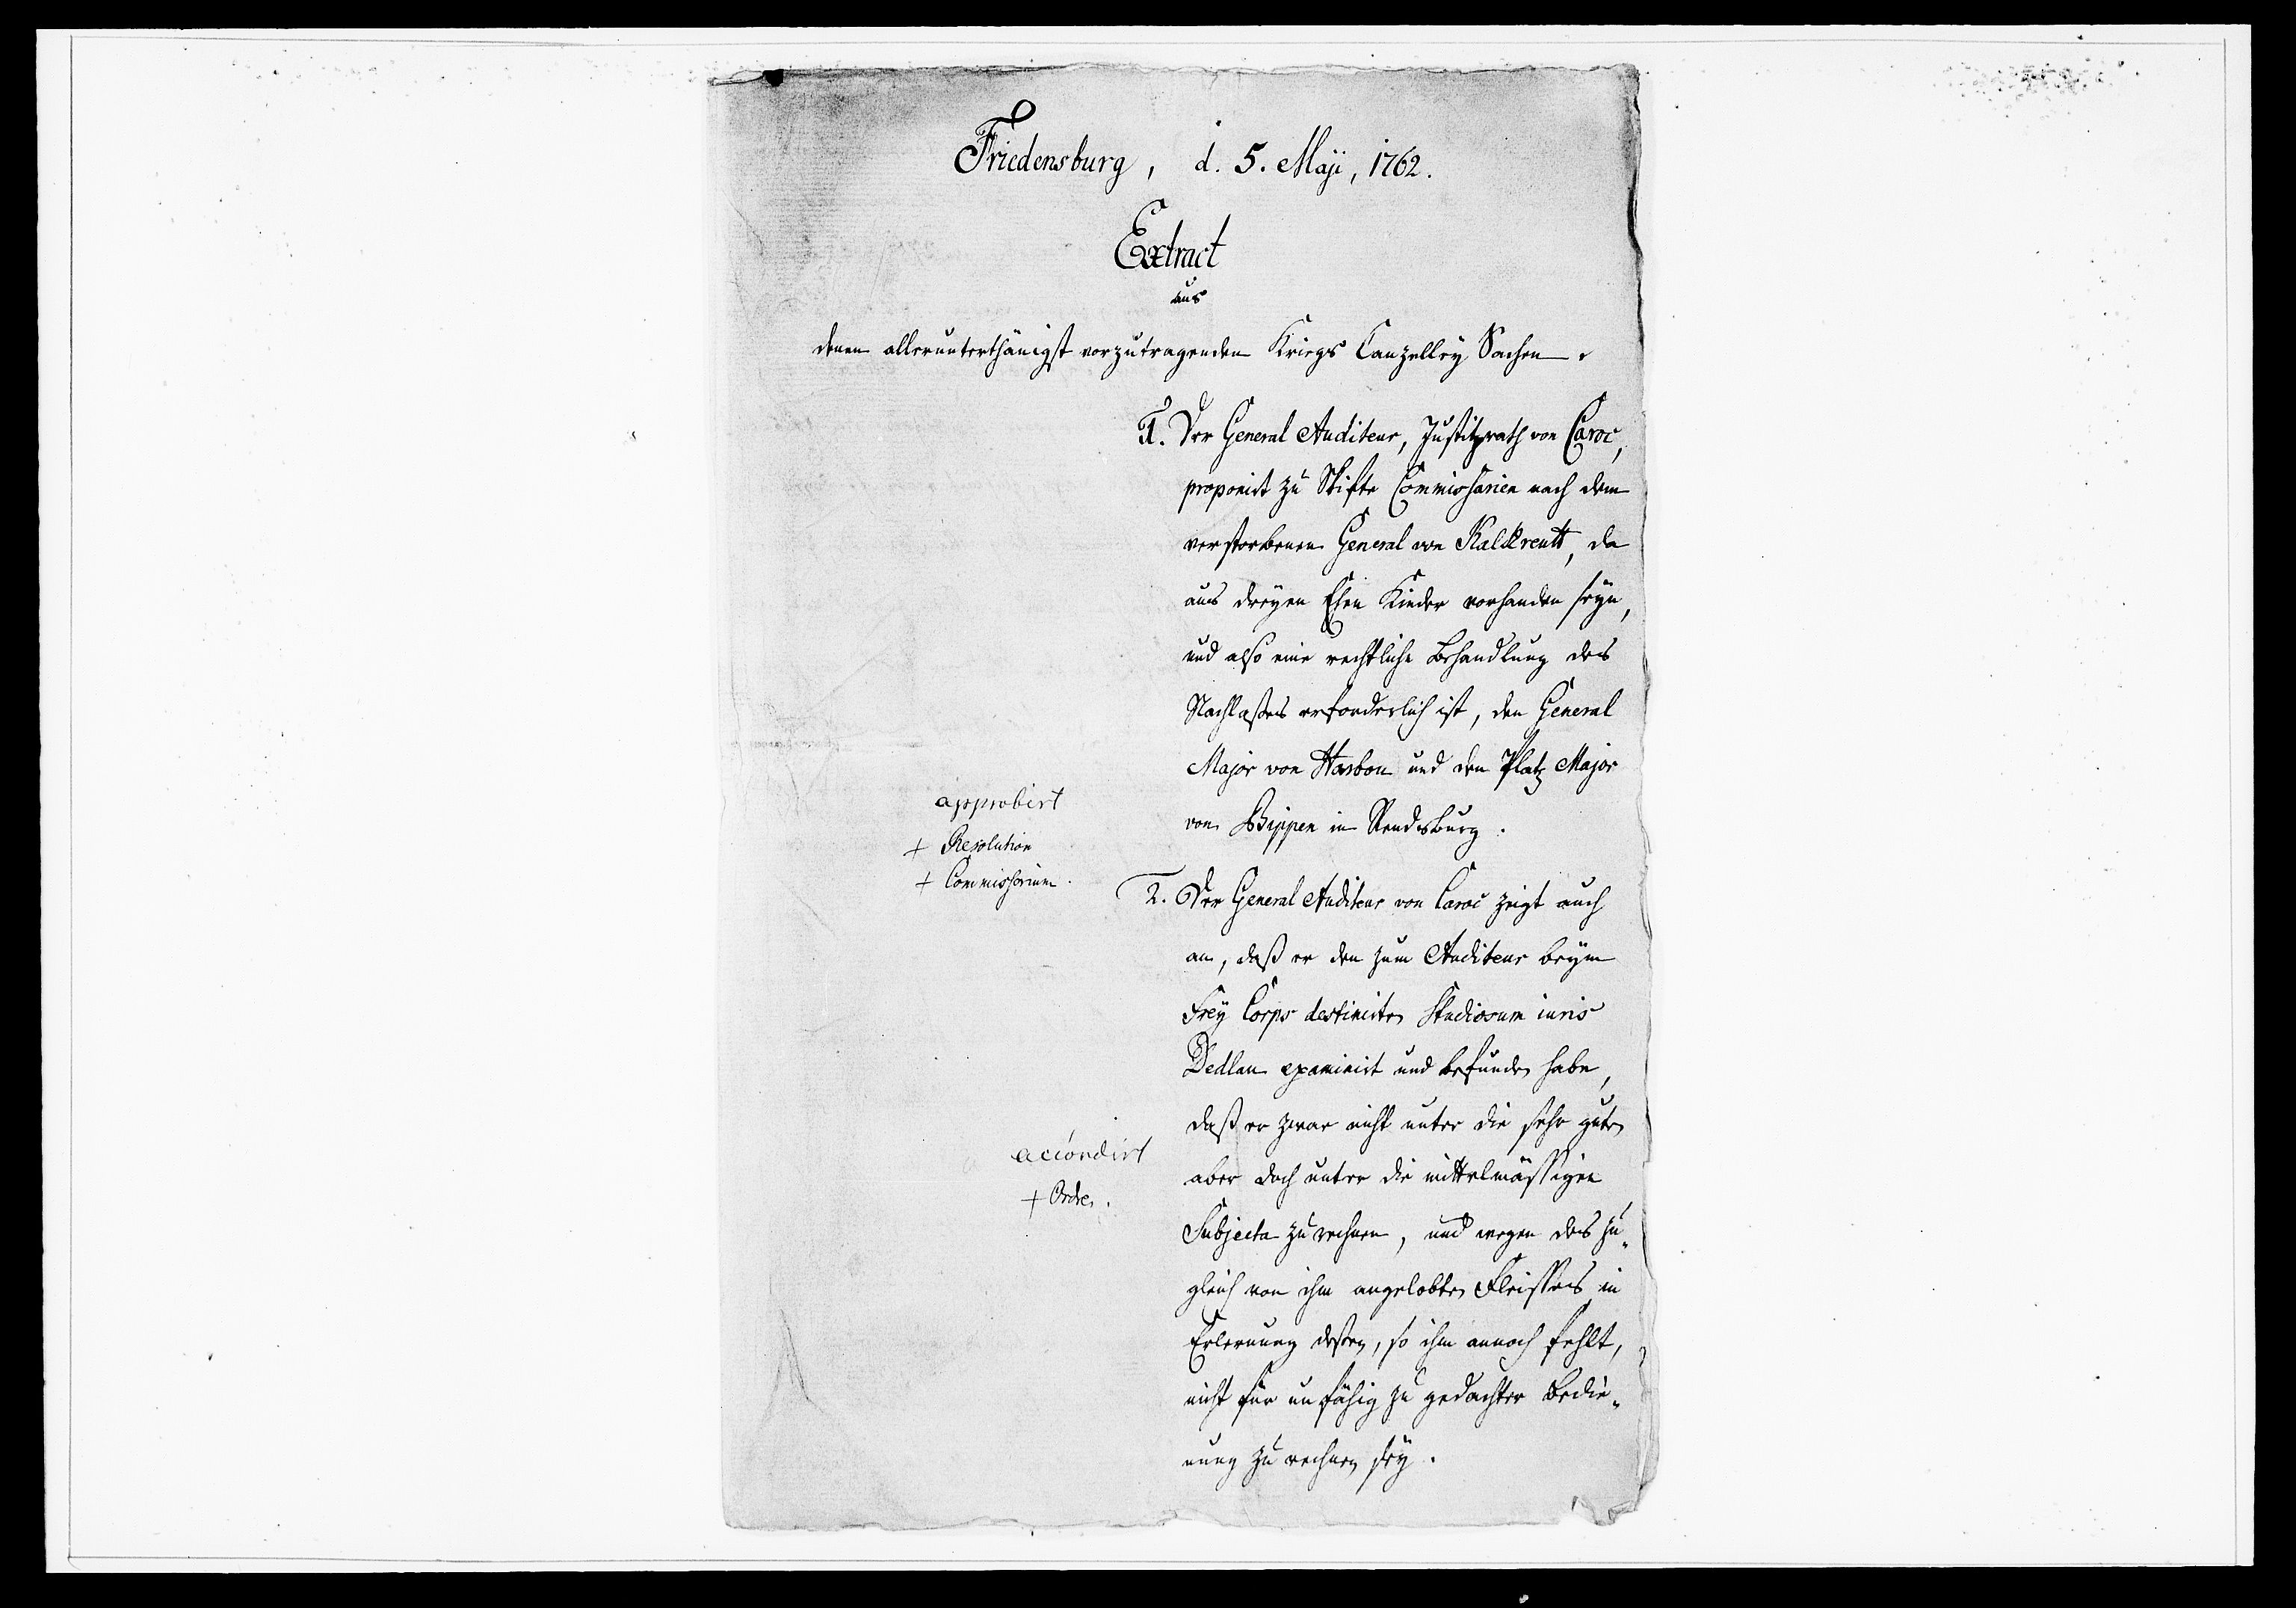 Friedensburg, d. 5. Maji, 1762.
Extract
aus
denen allerunterthänigst vorzutragenden Kriegs Canzelley Sachen.
1. Der General Auditeur, Justitzrath von Caroc,
proponirt zu Skifte Commissarien nach dem
verstorbenen General von Kalckreutt, da
aus dreyen Ehen Kinder vorhanden seyn,
und also eine rechtliche Behandlung des
Nachlaßes erforderlich ist, den General
Major von Harbou und den Platz Major
von Bippen in Rendsburg.
approbirt
+ Resolution
+ Commissorium.
2. Der General Auditeur von Caroc zeigt auch
an, daß er den zum Auditeur beym
Frey Corps destinirten Studiosum iuris
Dedlau examinirt und befunden habe,
daß er zwar nicht unter die sehr guten
aber doch unter die mittelmässigen
Subjecta zu rechnen, und wegen des zu-
gleich von ihm angelobten Fleisses in
Erlernung deßen, so ihm annoch fehlt,
nicht für unfähig zu gedachter Bedie-
nung zu rechnen sey.
accordirt
+ Ordre.